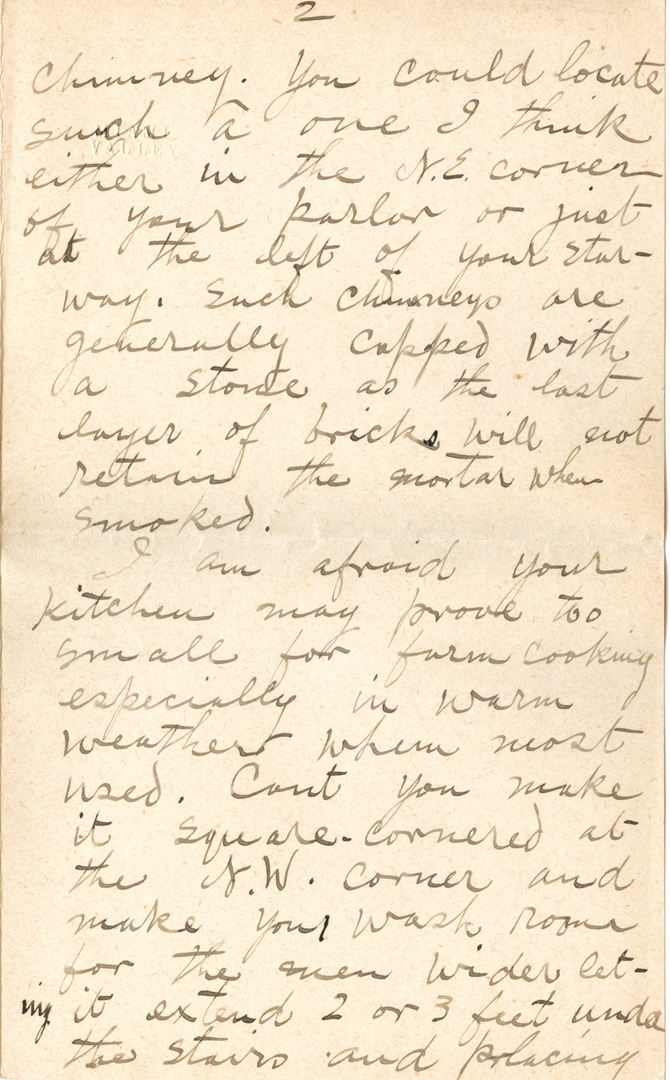 2
chimney. You could locate
such a one I think
either in the N.E. corner
of your parlor or just
at the left of your star-
way. Such chimneys are
generally capped with
a stone as the last
layer of bricks will not
retain the mortar when
smoked.
I am afraid your
kitchen may prove too
small for farm cooking
especially in warm
weather when most
used. Cant you make
it square-cornered at
the N.W. corner and
make your wash room
for the men wider let-
ing it extend 2 or 3 feet under
the stairs and placing